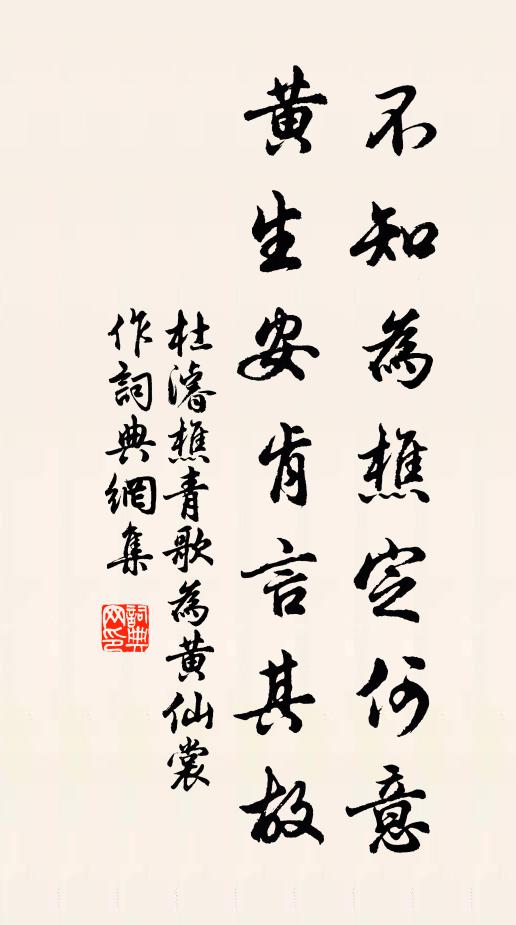 不知為樵定何意
黃生安肯言其故
杜濬樵青歌為黃仙裳
作詞典網集
詞典網印